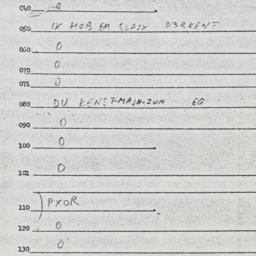 040 0
050 IX HOB EM GLAIX D3RKENT
060 0
070 0
071 0
080 DU KENST-MAJN-ZUN EG
090 0
100 0
101 0
110 PXOR
120 0
130 0